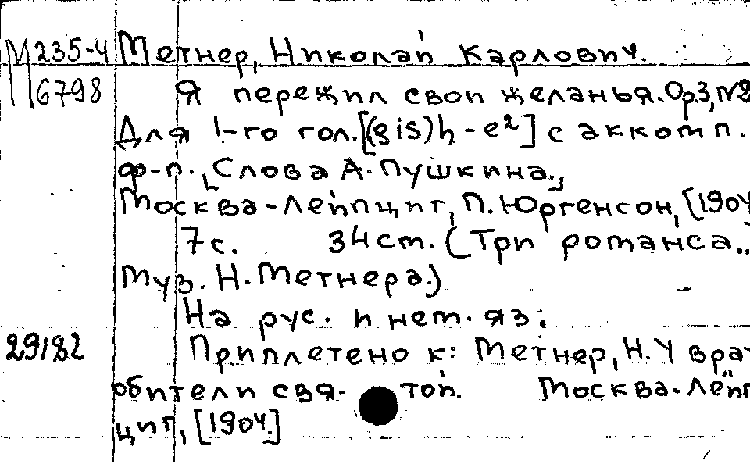 М 235-4 Метнер, Николай Карлович.
6798 Я пережил свои желанья. Ор.3, №2
Для 1-го гол. [(gis)h-e²] с аккомп.
ф-п. Слова А. Пушкина.,
Москва-Лейпциг, П. Юргенсон, [1904
7с. 34 cm. (Три романса..
Муз. Н. Метнера.)
На рус. и нем. яз.
29182 Приплетено к: Метнер, Н. У врат
обители свя- той. Москва-Лейп
циг, [1904.]